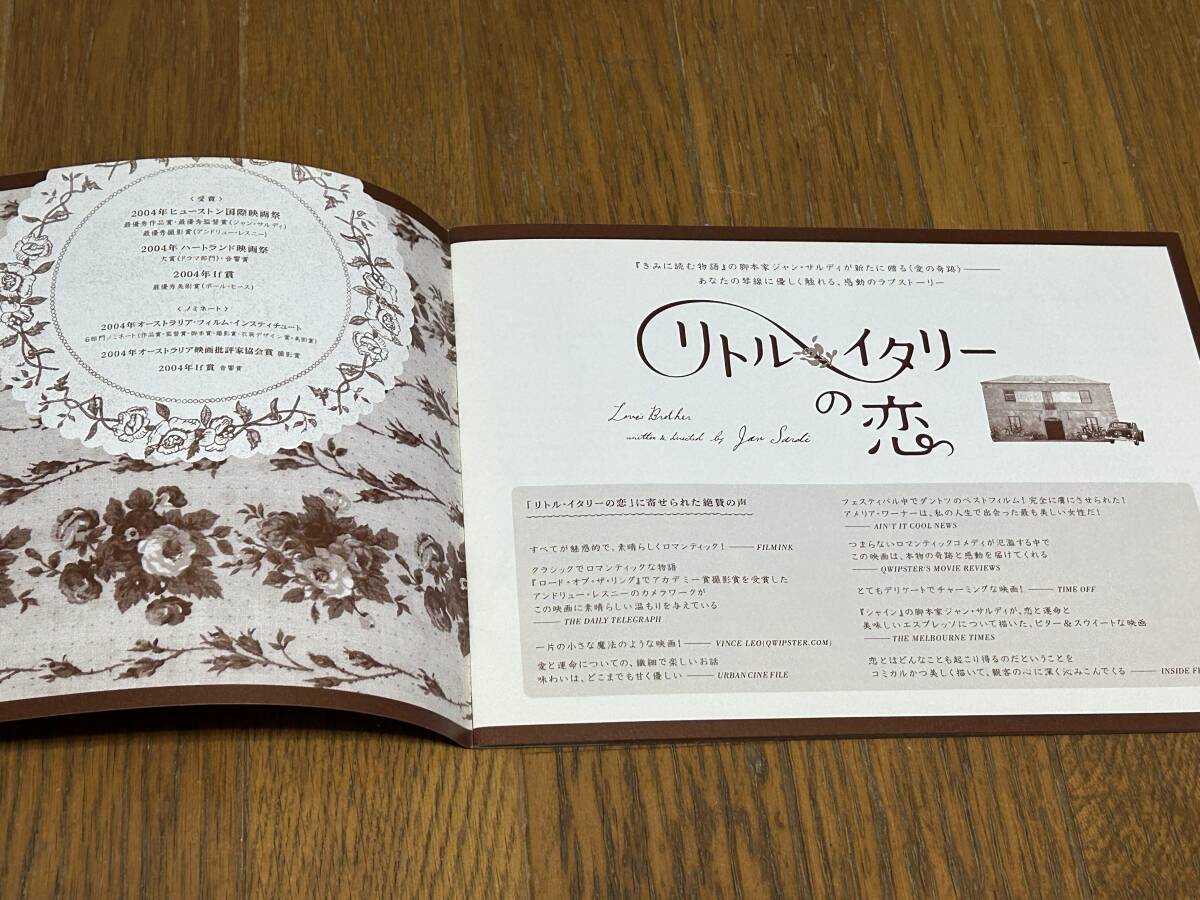 〈受賞〉
2004年ヒューストン国際映画祭
最優秀作品賞・最優秀監督賞(ジャン・サルディ)
最優秀撮影賞(アンドリュー・レスニー)
2004年ハートランド映画祭
大賞(ドラマ部門)・音響賞
2004年If賞
最優秀美術賞(ポール・ヒース)
〈ノミネート〉
2004年オーストラリア・フィルム・インスティチュート
6部門ノミネート(作品賞・監督賞・脚本賞・撮影賞・衣装デザイン賞・美術賞)
2004年オーストラリア映画批評家協会賞 撮影賞
2004年If賞 音響賞
『きみに読む物語』の脚本家ジャン・サルディが新たに贈る〈愛の奇跡〉――
あなたの琴線に優しく触れる、感動のラブストーリー
リトル・イタリー
の恋
Love's Brother
written & directed by Jan Sardi
「リトル・イタリーの恋」に寄せられた絶賛の声
すべてが魅惑的で、素晴らしくロマンティック! ―― FILMINK
クラシックでロマンティックな物語
『ロード・オブ・ザ・リング』でアカデミー賞撮影賞を受賞した
アンドリュー・レスニーのカメラワークが
この映画に素晴らしい温もりを与えている
―― THE DAILY TELEGRAPH
一片の小さな魔法のような映画! ―― VINCE LEO(QWIPSTER.COM)
愛と運命についての、繊細で楽しいお話
味わいは、どこまでも甘く優しい ―― URBAN CINE FILE
フェスティバル中でダントツのベストフィルム! 完全に虜にさせられた!
アメリア・ワーナーは、私の人生で出会った最も美しい女性だ!
―― AIN'T IT COOL NEWS
つまらないロマンティックコメディが氾濫する中で
この映画は、本物の奇跡と感動を届けてくれる
―― QWIPSTER'S MOVIE REVIEWS
とてもデリケートでチャーミングな映画! ―― TIME OFF
『シャイン』の脚本家ジャン・サルディが、恋と運命と
美味しいエスプレッソについて描いた、ビター&スウィートな映画
―― THE MELBOURNE TIMES
恋とはどんなことも起こり得るのだということを
コミカルかつ美しく描いて、観客の心に深く沁みこんでくる ―― INSIDE F